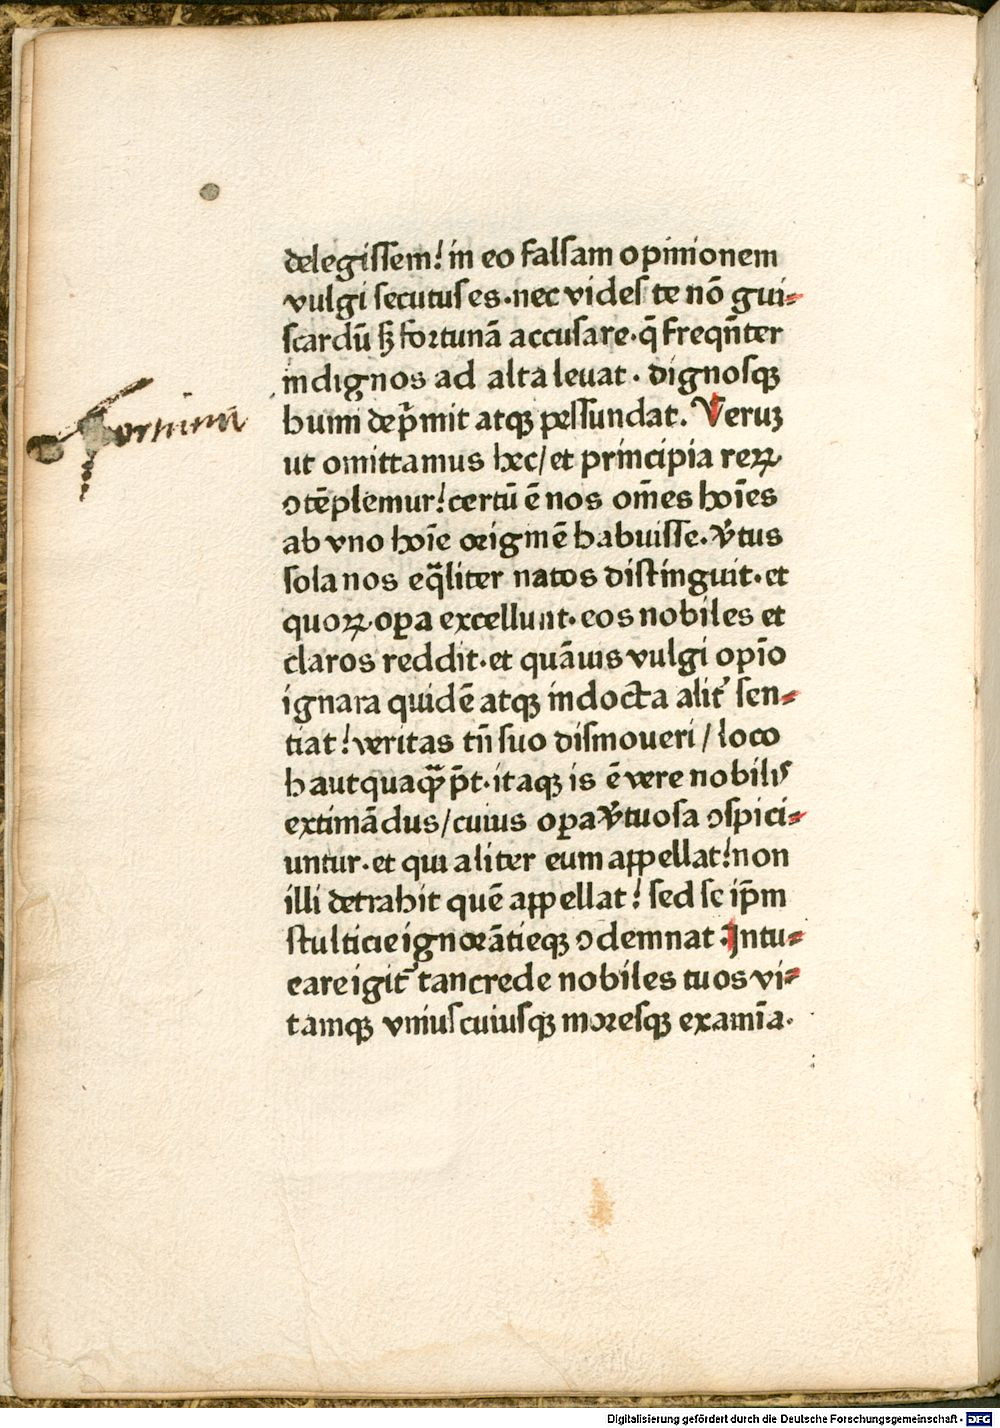 delegiſſem! in eo falſam opinionem
vulgi ſecutuſ es. nec videſ te nō gui⸗
ſcardū ſꝫ fortunā accuſare. q̄ freqn̄ter
indignos ad alta leuat. dignoſqꝫ
humi dep̄mit atqꝫ peſſundat. Veruꝫ
ut omittamus hec/ et principia reꝝ
ↄtēplemur! certū ē nos om̄es hoīes
ab vno hoīe originē habuiſſe. v̓tus
ſola nos eq̄liter natos diſtinguit. et
quoꝝ oꝑa excellunt. eos nobiles et
claros reddit. et quāuis vulgi opīo
ignara quidē atqꝫ indocta alit̓ ſen⸗
tiat! veritas tn̄ ſuo diſmoueri / loco
hautquaqꝫ̄ p̄t. itaqꝫ is ē vere nobilis
extimādus/ cuius oꝑa v̓tuoſa ↄſpici⸗
untur. et qui aliter eum appellat! non
illi detrahit quē appellat! ſed ſe ip̄m
ſtulticie ignorātieqꝫ ↄdemnat. Intu⸗
eare igit̓ tancrede nobiles tuos vi⸗
tamqꝫ vniuſcuiuſqꝫ moreſqꝫ examīa.
Digitalisierung gefördert durch die Deutsche Forschungsgemeinschaft - DFG